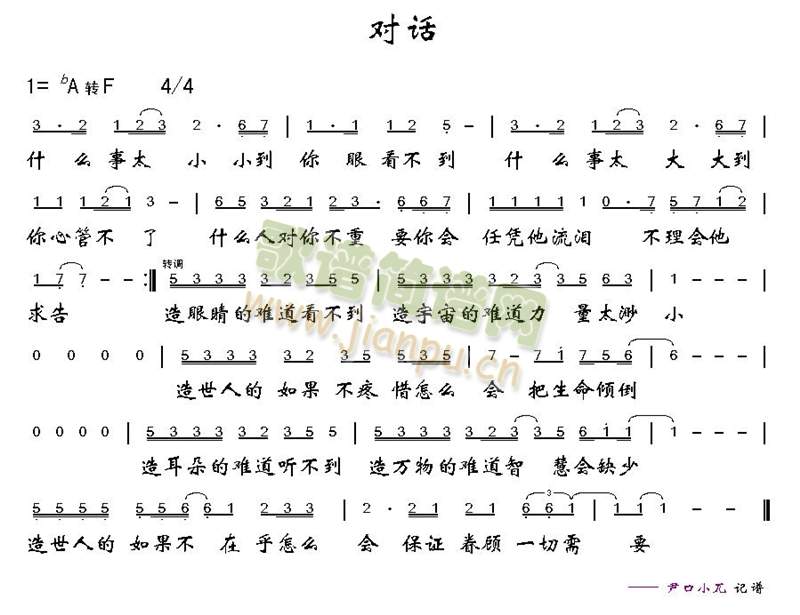 对话
1= ♭A 转 F 4/4
3 · 2 1 2 3 2 · 6 7 | 1 · 1 1 2 5 - | 3 · 2 1 2 3 2 · 6 7 |
什么事太小小到你眼看不到什么事太大大到
1 1 1 2 1 3 - | 6 5 3 2 1 2 3 · 6 6 7 | 1 1 1 1 1 0 · 7 5 7 1 2 |
你心管不了什么人对你不重要你会任凭他流泪不理会他
1 7 7 - - :‖ 转调 5 3 3 3 3 2 3 5 5 | 5 3 3 3 3 2 3 3 5 6 3 | 1 - - - |
求告造眼睛的难道看不到造宇宙的难道力量太渺小
0 0 0 0 | 5 3 3 3 3 2 3 5 | 5 3 3 2 2 7 | 7 - 7 1 7 5 6 | 6 - - - |
造世人的如果不疼惜怎么会把生命倾倒
0 0 0 0 | 5 3 3 3 3 2 3 5 5 | 5 3 3 3 3 2 3 3 5 6 1 1 | 1 - - - |
造耳朵的难道听不到造万物的难道智慧会缺少
5 5 5 5 5 5 6 6 1 2 3 3 | 2 · 2 2 1 2 6 6 1 | 1 - - - ‖
3
造世人的如果不在乎怎么会保证眷顾一切需要
—— 尹口小兀 记谱
歌谱简谱网
www.jianpu.cn